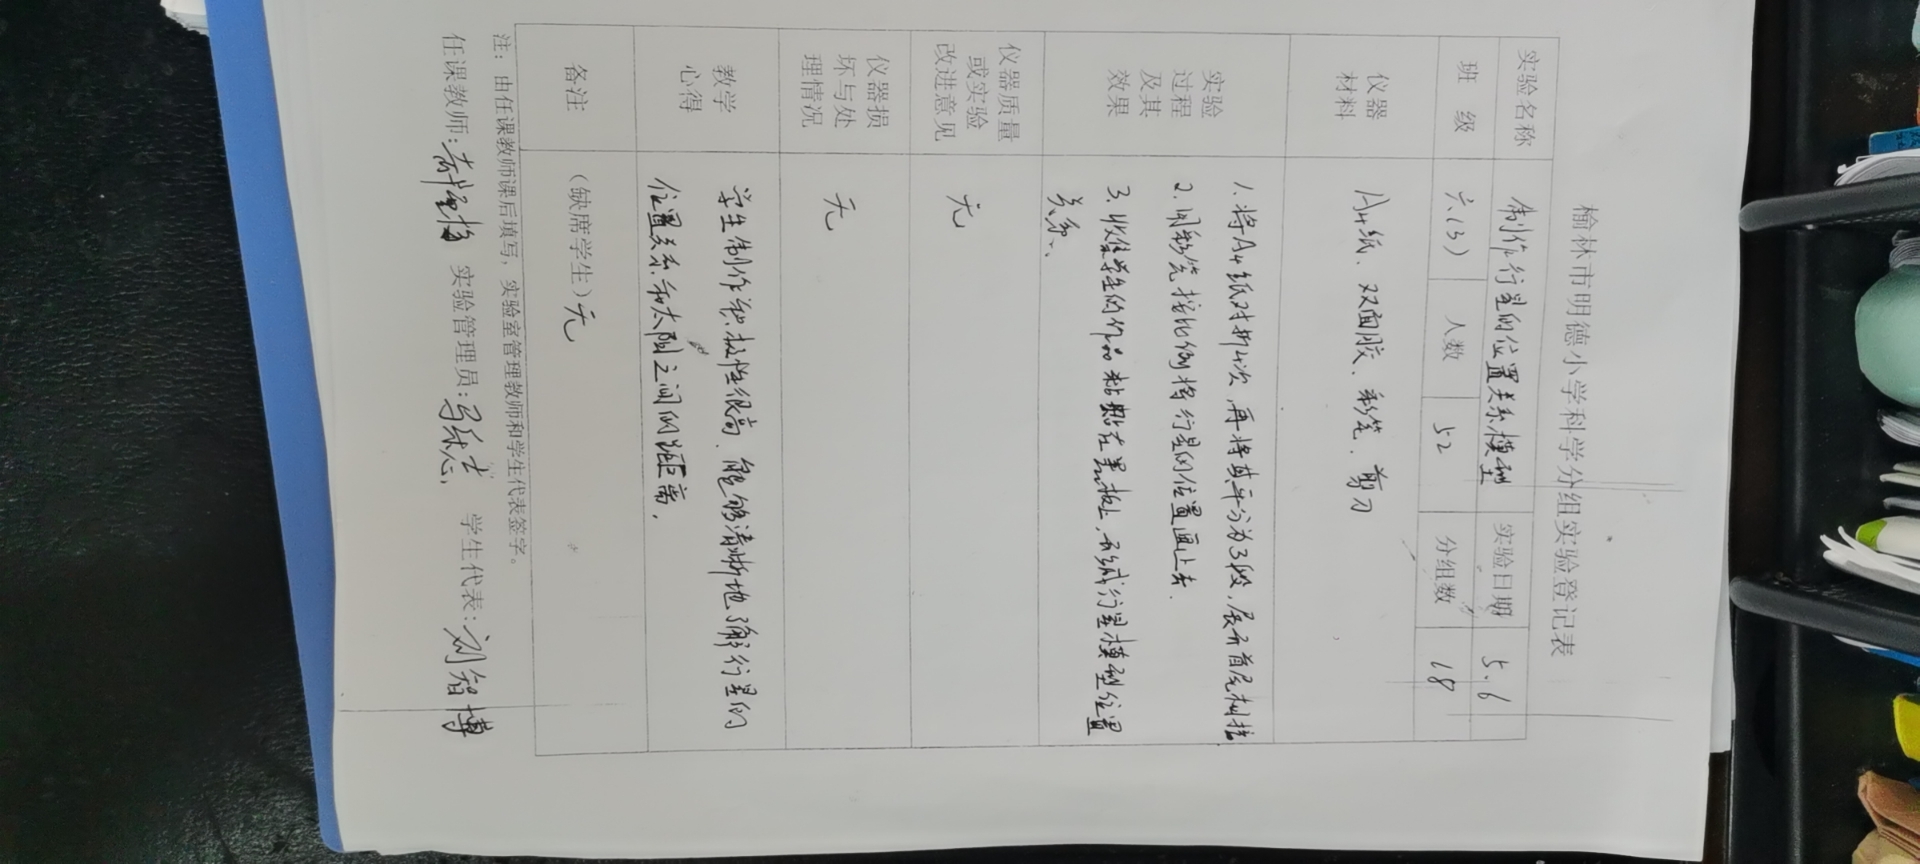 榆林市明德小学科学分组实验登记表
实验名称 制作行星的位置关系模型 实验日期 5.6
班 级 六(3) 人数 52 分组数 18
仪器
材料
A4纸、双面胶、彩笔、剪刀
实验
过程
及其
效果
1. 将A4纸对折4次,再将其平分为3段,展开首尾相接
2. 用彩笔按比例将行星的位置画上去.
3. 收集学生的作品粘贴在黑板上,形成行星模型位置
关系、
仪器质量
或实验
改进意见
无
仪器损
坏与处
理情况
无
教学
心得
学生制作积极性很高、能够清晰地了解行星的
位置关系和太阳之间的距离,
备注 (缺席学生)无
注:由任课教师课后填写,实验室管理教师和学生代表签字。
任课教师: 实验管理员: 学生代表:刘智博